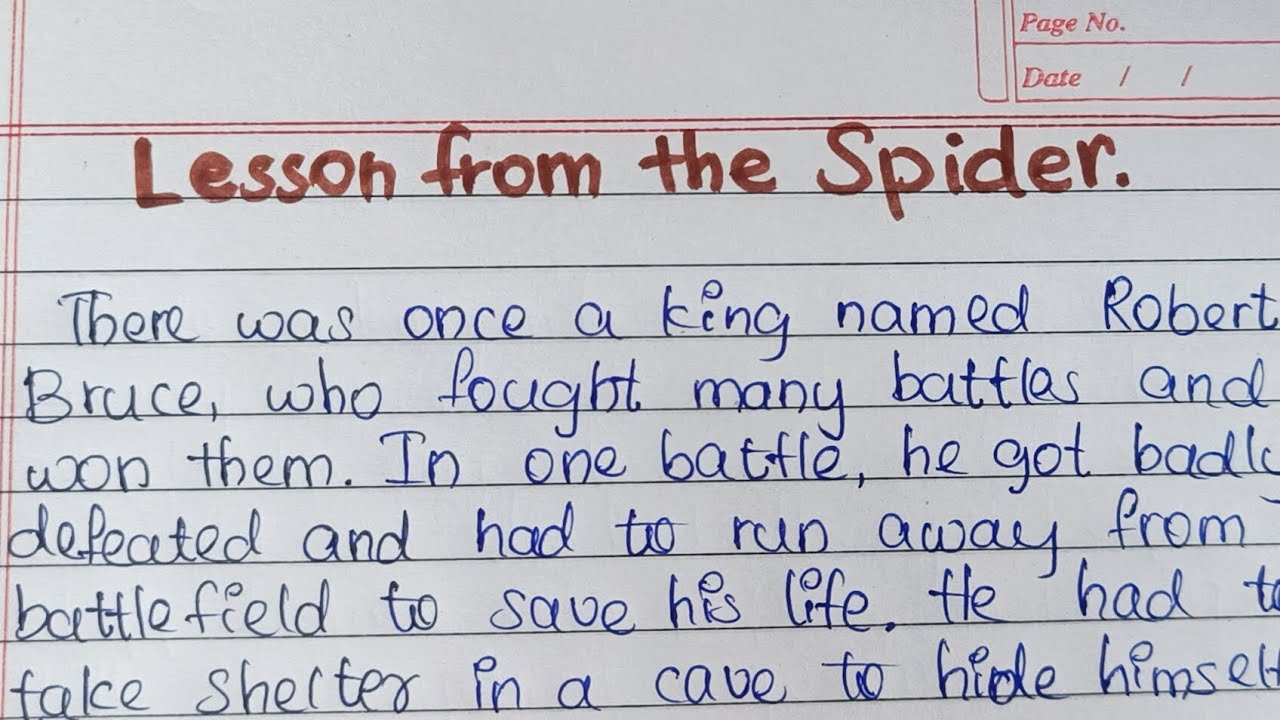 Page No.
Date / /
Lesson from the Spider.
There was once a king named Robert
Bruce, who fought many battles and
won them. In one battle, he got badly
defeated and had to run away from
battlefield to save his life. He had to
take shelter in a cave to hide himself